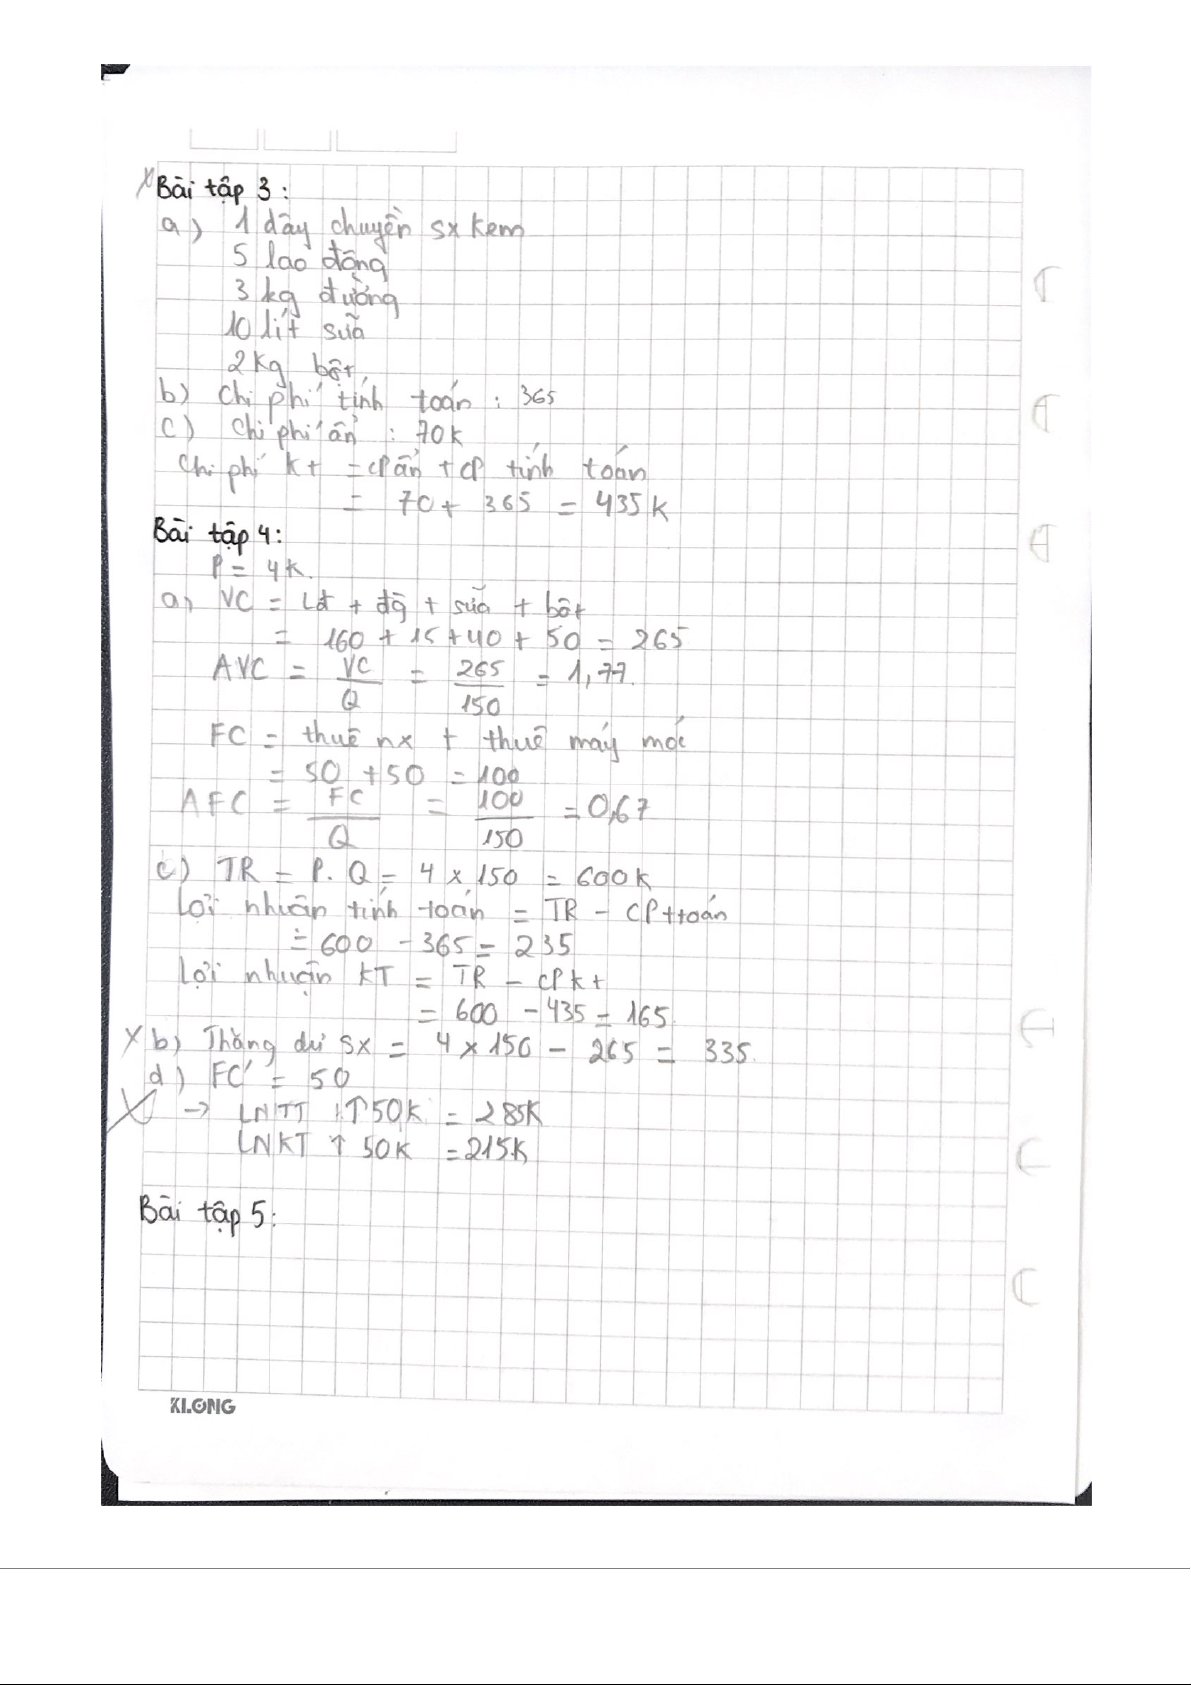 Bài tập 3 :
a) 1 dây chuyền sx kem
5 lao động
3 kg đường
10 lít sữa
2 kg bột
b) Chi phí tính toán : 365
c) Chi phí ẩn : 70k
Chi phí kt = CP ẩn + CP tính toán
= 70 + 365 = 435k
Bài tập 4:
P = 4k.
a, VC = Lđ + đg + sữa + bột
= 160 + 15 + 40 + 50 = 265
AVC = VC/Q = 265/150 = 1,77.
FC = thuê nx + thuê máy móc
= 50 + 50 = 100
AFC = FC/Q = 100/150 = 0,67
c) TR = P. Q = 4 x 150 = 600k
Lợi nhuận tính toán = TR - CP ttoán
= 600 - 365 = 235
Lợi nhuận KT = TR - CP kt
= 600 - 435 = 165
X b) Thặng dư sx = 4 x 150 - 265 = 335.
d) FC' = 50
→ LNTT ↑ 50k = 285k
LNKT ↑ 50k = 215k
Bài tập 5:
KLONG